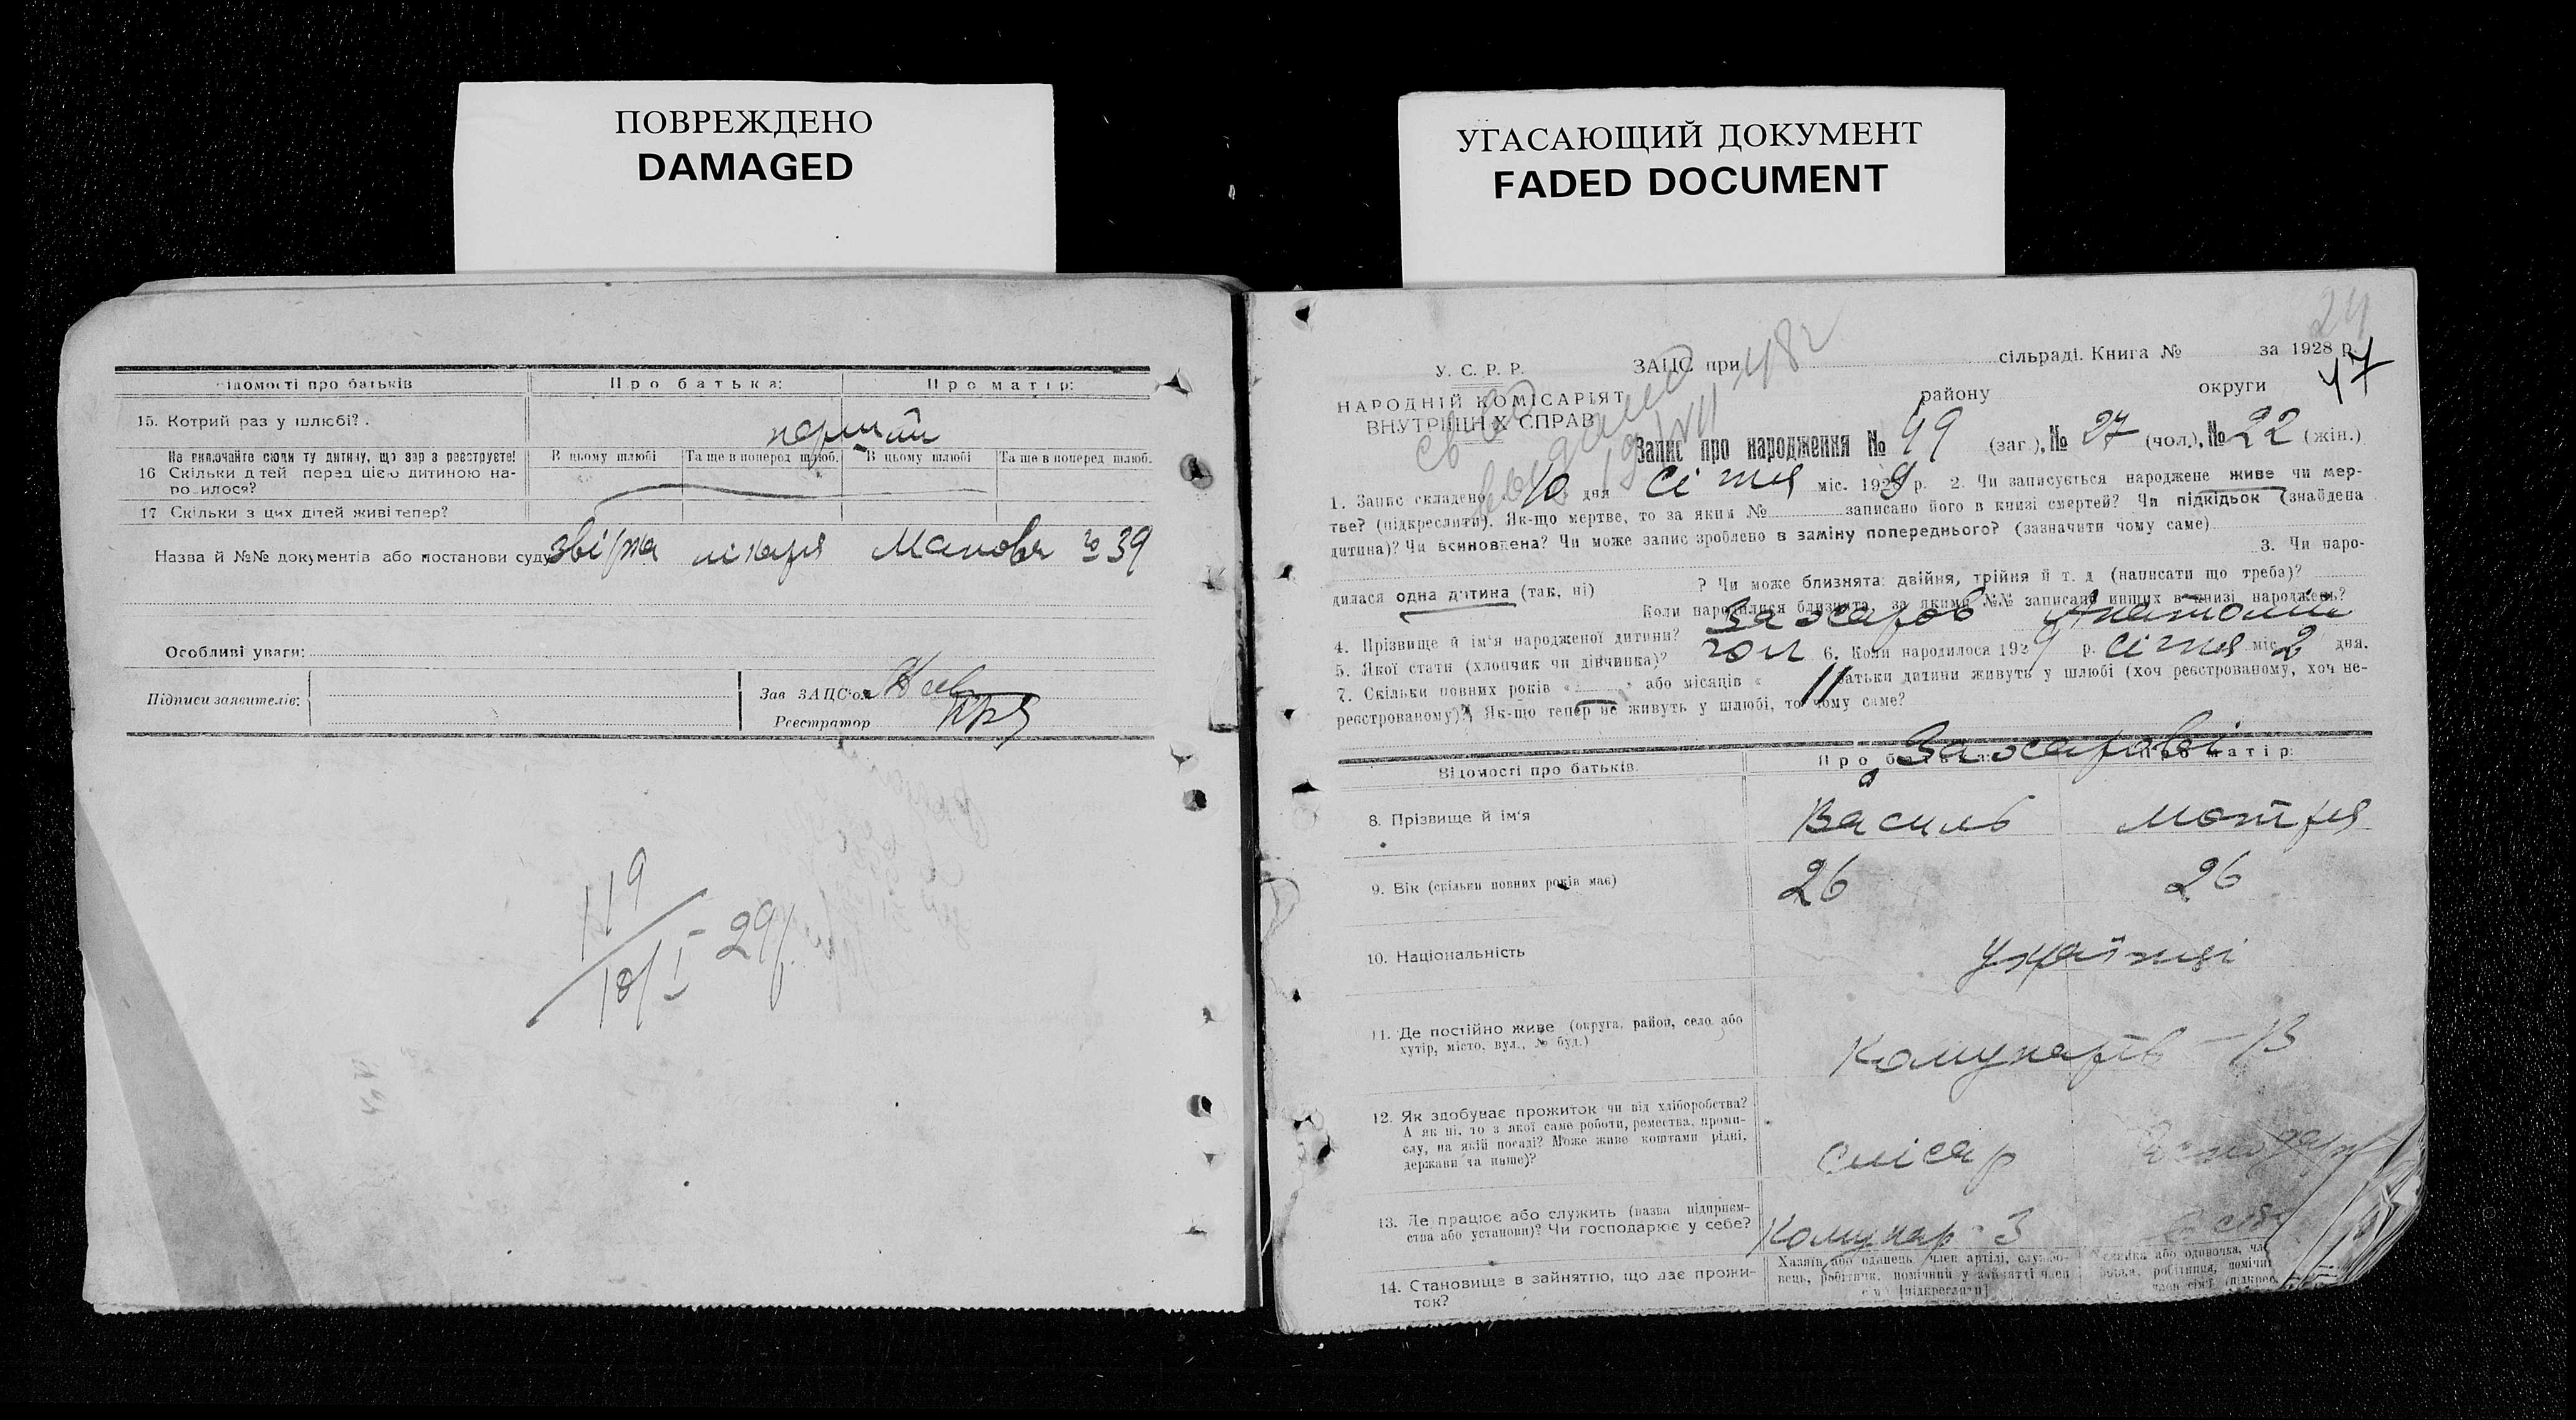 ПОВРЕЖДЕНО
DAMAGED
УГАСАЮЩИЙ ДОКУМЕНТ
FADED DOCUMENT
ідомості про батьків Про батька: Про матір:
15. Котрий раз у шлюбі?.
перший
Не включайте сюди ту дитину, що зар з реєструєте! В цьому шлюбі Та ще в поперед шлюб. В цьому шлюбі Та ще в поперед шлюб.
16 Скільки д тей перед цією дитиною на-
ро илося?
17 Скільки з цих дітей живі тепер?
Назва й №№ документів або постанови суду звірка лікаря № 39
Особливі уваги:
Підписи заявителів:
Зав ЗАЦС'ом
Реєстратор
119
18/I-29
24
У. С. Р. Р. ЗАЦС при сільраді. Книга № за 1928 р.
47
НАРОДНІЙ КОМІСАРІЯТ району округи
ВНУТРІШНІХ СПРАВ
Запис про народження № 49 (заг.), № 27 (чол.), № 22 (жін.)
1. Запис складено 10 дня Січня міс. 1929 р. 2. Чи записується народжене живе чи мер-
тве? (підкреслити). Як-що мертве, то за яким № записано його в книзі смертей? Чи підкідьок (знайдена
дитина)? Чи всиновлена? Чи може запис зроблено в заміну попереднього? (зазначити чому саме)
3. Чи наро-
дилася одна дитина (так, ні) ? Чи може близнята: двійня, трійня й т. д (написати що треба)?
Коли народилися близнята, за якими №№ записано інших в книзі народжень?
4. Прізвище й ім'я народженої дитини? Захаров Анатолій
5. Якої стати (хлопчик чи дівчинка)? чол 6. Коли народилося 1929 р. січня міс 2 дня.
7. Скільки повних років « » або місяців « батьки дитини живуть у шлюбі (хоч реєстрованому, хоч не-
реєстрованому)? Як-що тепер не живуть у шлюбі, то чому саме?
Відомості про батьків. Про батька: Про матір:
Захарові
8. Прізвище й ім'я Василь Мотря
9. Вік (скільки повних років має) 26 26
10. Національність Українці
11. Де постійно живе (округа, район, село або
хутір, місто, вул., № буд.)
Комунарів - 13
12. Як здобуває прожиток чи від хліборобства?
А як ні, то з якої саме роботи, ремества, проми-
слу, на якій посаді? Може живе коштами рідні,
держави та инше)?
Слісар
13. Де працює або служить (назва підприєм-
ства або установи)? Чи господарює у себе?
Комунар. З
14. Становище в зайняттю, що дає прожи-
ток?
Хазяїн або одинець, член артілі, службо-
вець, робітник, помічний у зайнятті член
[підкреслити]